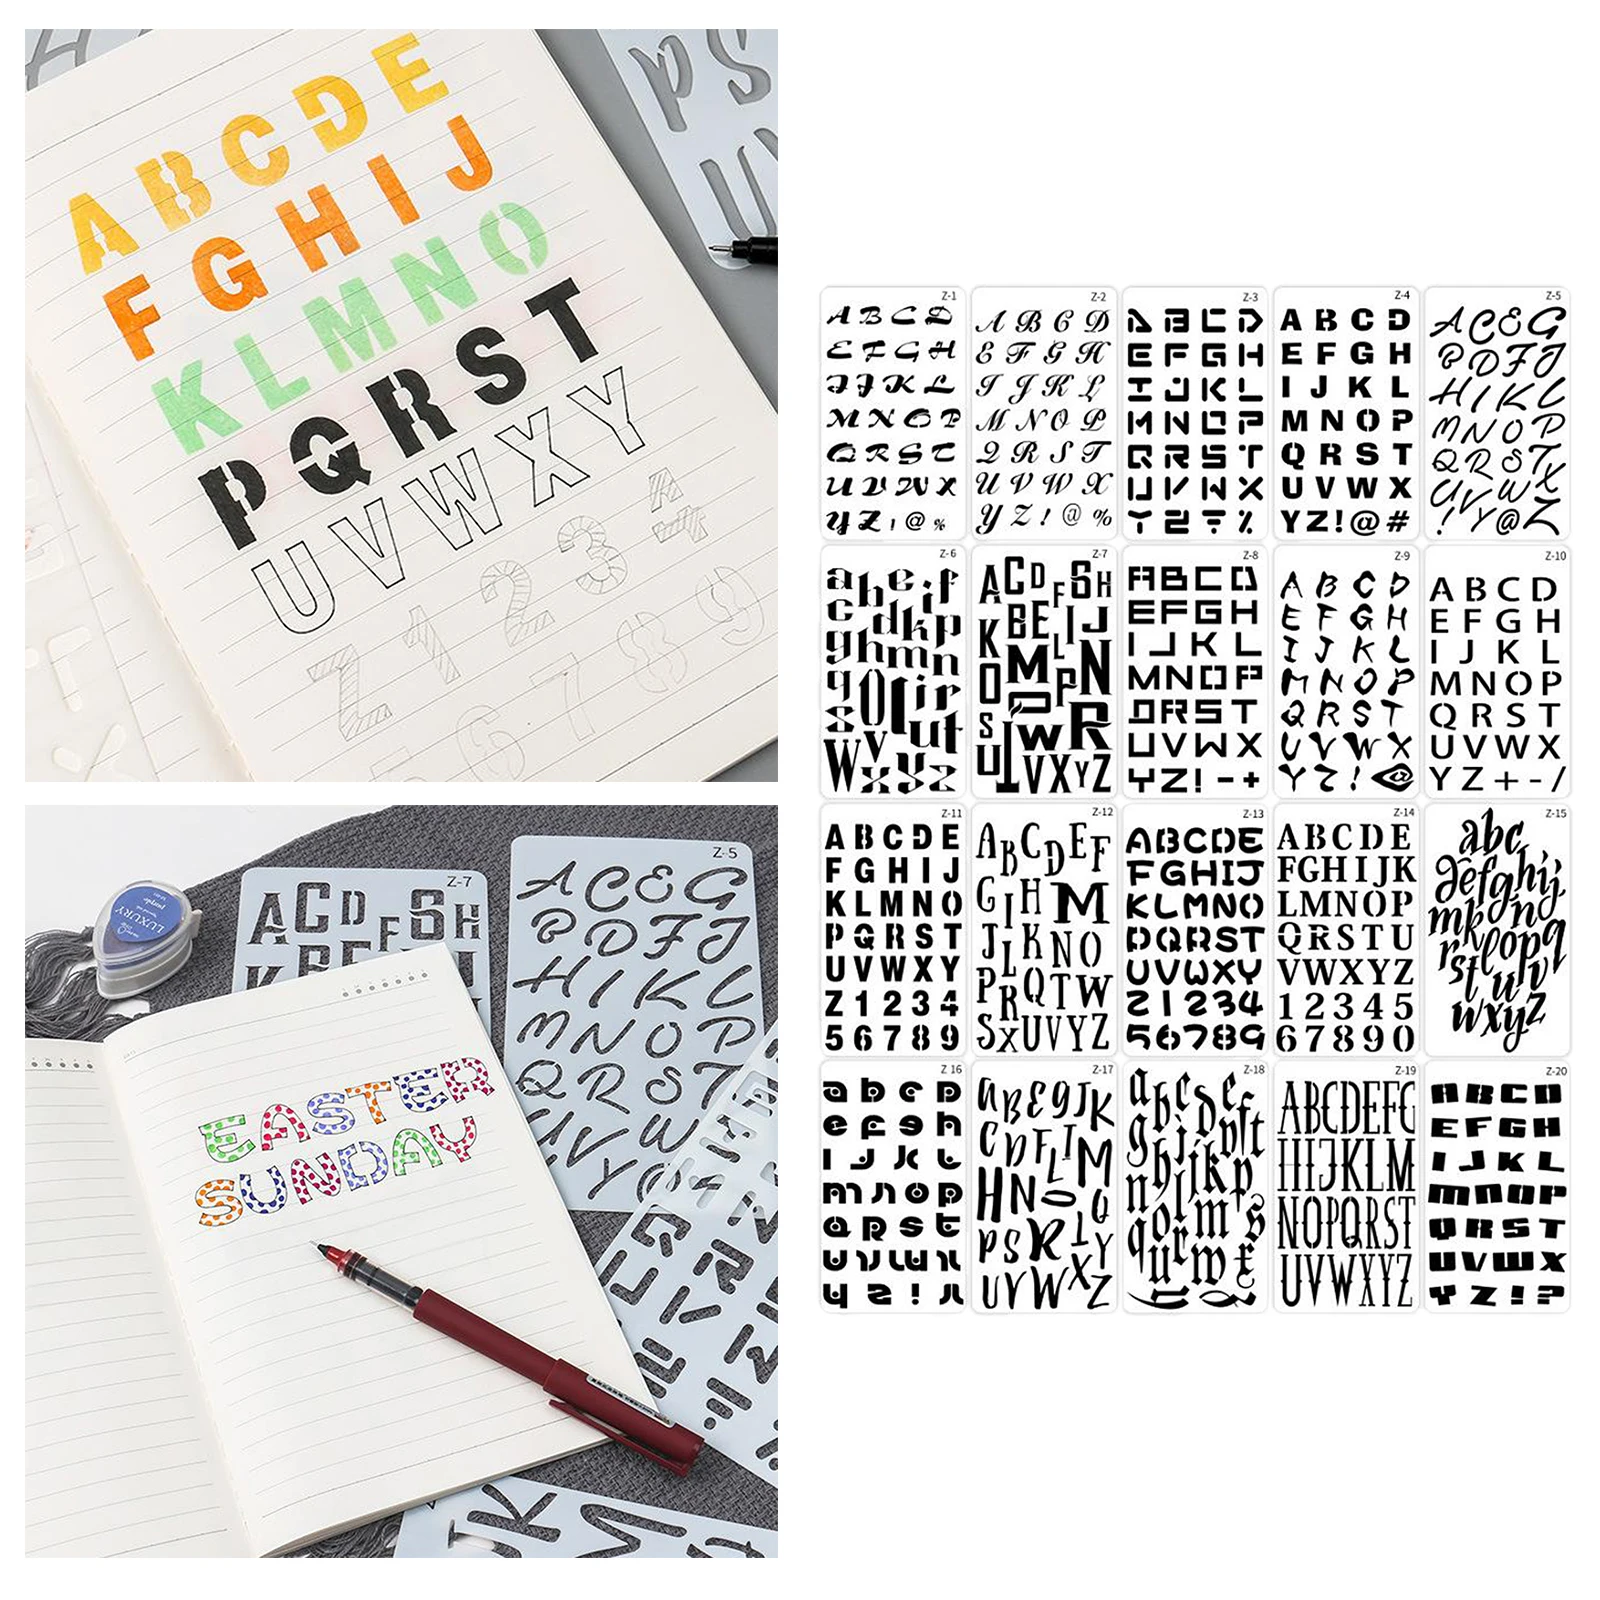 A B C D E
F G H I J
K L M N O
P Q R S T
U V W X Y
Z 1 2 3 4
5 6 7 8 9
P S
U
LUXURY
purple
Z-7
A C D F G H
Z-5
A C E G
B D F J
H I K L
M N O P
Q R S T
U V W X
Y @
EASTER
SUNDAY
Z-1
A B C D
E F G H
I J K L
M N O P
Q R S T
U V W X
Y Z ! @ %
Z-2
A B C D
E F G H
I J K L
M N O P
Q R S T
U V W X
Y Z ! @ %
Z-3
A B C D
E F G H
I J K L
M N O P
Q R S T
U V W X
Y Z
Z-4
A B C D
E F G H
I J K L
M N O P
Q R S T
U V W X
Y Z ! @ #
Z-5
A C E G
B D F J
H I K L
M N O P
Q R S T
U V W X
! Y @ Z
Z-6
a b e i f
c d k p
g h m n
y o l i r
s u t
w v x y z
Z-7
A C D F G H
B E I J
K L
O M P N
S W R
U T V X Y Z
Z-8
A B C D
E F G H
I J K L
M N O P
Q R S T
U V W X
Y Z ! - +
Z-9
A B C D
E F G H
I J K L
M N O P
Q R S T
U V W X
Y Z ! @
Z-10
A B C D
E F G H
I J K L
M N O P
Q R S T
U V W X
Y Z + - /
Z-11
A B C D E
F G H I J
K L M N O
P Q R S T
U V W X Y
Z 1 2 3 4
5 6 7 8 9
Z-12
A B C D E F
G I H M
J L K N O
P R Q T W
S X U V Y Z
Z-13
A B C D E
F G H I J
K L M N O
P Q R S T
U V W X Y
Z 1 2 3 4
5 6 7 8 9
Z-14
A B C D E
F G H I J K
L M N O P
Q R S T U
V W X Y Z
1 2 3 4 5
6 7 8 9 0
Z-15
abc
defghij
mk n q
rstlop
u v
wxyz
Z 16
a b c D
e F g h
I J K L
m n o p
Q R S t
u v w x
y z !
Z-17
A B E G J K
C D F I
L M
H N O Q
P S R T Y
U V W X Z
Z-18
Z-19
ABCDEFG
HIJKLM
NOPQRST
UVWXYZ
Z-20
A B C D
E F G H
I J K L
M N O P
Q R S T
U V W X
Y Z ! ?